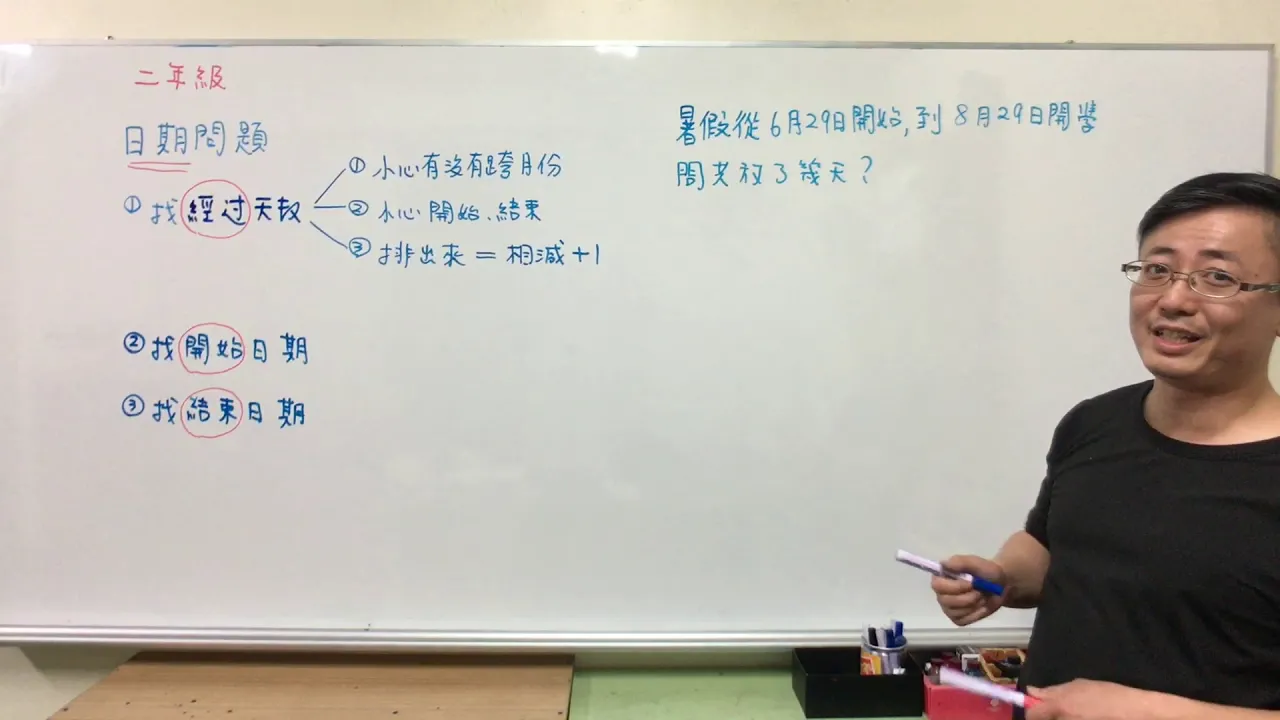 二年級
日期問題
① 找經过天数
① 小心有沒有跨月份
② 小心開始、結束
③ 排出來=相減+1
② 找開始日期
③ 找結束日期
暑假從6月29日開始,到8月29日開學
問共放了幾天?